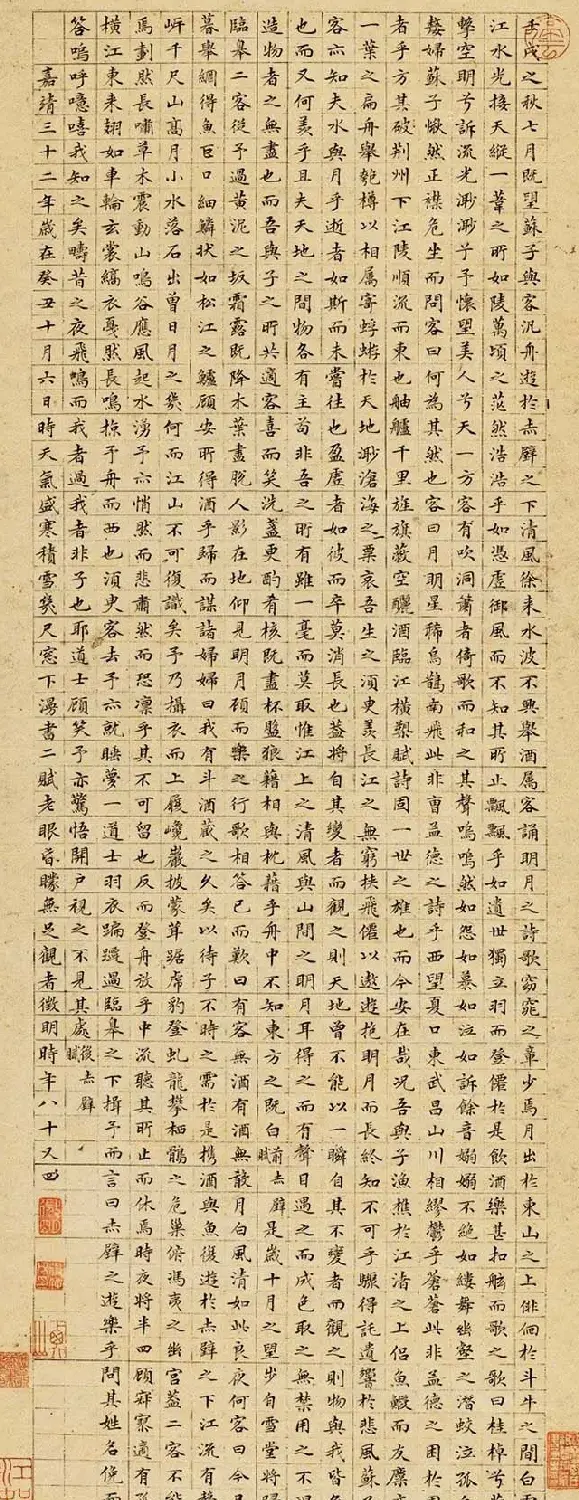 壬戌之秋七月既望蘇子與客汎舟遊於赤壁之下清風徐来水波不興舉酒属客誦明月之詩歌窈窕之章少焉月出於東山之上徘徊於斗牛之間白
江水光接天縱一葦之所如陵萬頃之茫然浩浩乎如憑虛御風而不知其所止飄飄乎如遺世獨立羽而登僊於是飲酒樂甚扣舷而歌之歌曰桂棹兮
擊空明兮訴流光渺渺兮予懷望美人兮天一方客有吹洞簫者倚歌而和之其聲嗚嗚然如怨如慕如泣如訴餘音嫋嫋不絕如縷舞幽壑之潛蛟泣孤
嫠婦蘇子愀然正襟危坐而問客曰何為其然也客曰月明星稀烏鵲南飛此非曹孟德之詩乎西望夏口東武昌山川相繆鬱乎蒼蒼此非孟德之困於
者乎方其破荆州下江陵順流而東也舳艫千里旌旗蔽空釃酒臨江橫槊賦詩固一世之雄也而今安在哉況吾與子漁樵於江渚之上侶魚鰕而友麋
一葉之扁舟舉匏樽以相属寄蜉蝣於天地渺滄海之一粟哀吾生之須臾羨長江之無窮挾飛僊以遨遊抱明月而長終知不可乎驟得託遺響於悲風蘇
客亦知夫水與月乎逝者如斯而未嘗往也盈虛者如彼而卒莫消長也蓋將自其變者而觀之則天地曾不能以一瞬自其不變者而觀之則物與我皆
也而又何羨乎且夫天地之間物各有主苟非吾之所有雖一毫而莫取惟江上之清風與山間之明月耳得之而有聲目遇之而成色取之無禁用之不
造物者之無盡也而吾與子之所共適客喜而笑洗盞更酌肴核既盡杯盤狼藉相與枕藉乎舟中不知東方之既白前赤壁賦是歲十月之望步自雪堂將歸
臨皋二客從予過黃泥之坂霜露既降木葉盡脫人影在地仰見明月顧而樂之行歌相答已而歎曰有客無酒有酒無殽月白風清如此良夜何客曰今
暮舉網得魚巨口細鱗狀如松江之鱸顧安所得酒乎歸而謀諸婦婦曰我有斗酒藏之久矣以待子不時之需於是携酒與魚復遊於赤壁之下江流有聲
岍千尺山高月小水落石出曾日月之幾何而江山不可復識矣予乃攝衣而上履巉巖披蒙茸踞虎豹登虬龍攀栖鶻之危巢俯馮夷之幽宮蓋二客不能
焉劃然長嘯草木震動山鳴谷應風起水湧予亦悄然而悲肅然而恐凜乎其不可留也反而登舟放乎中流聽其所止而休焉時夜將半四顧寂寥適有孤
橫江東来翅如車輪玄裳縞衣戛然長鳴掠予舟而西也須臾客去予亦就睡夢一道士羽衣蹁躚過臨皋之下揖予而言曰赤壁之遊樂乎問其姓名俛而
答嗚呼噫嘻我知之矣疇昔之夜飛鳴而我者過我者非子也耶道士顧笑予亦驚悟開戶視之不見其處後赤壁賦
嘉靖三十二年歲在癸丑十月六日時天氣盛寒積雪幾尺窓下漫書二賦老眼昏矇無足觀者徵明時年八十又四